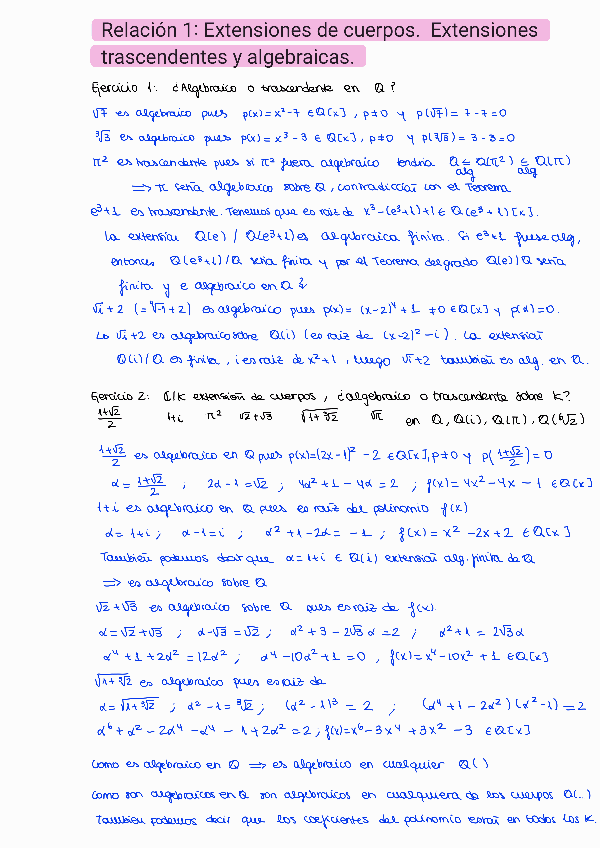 Relación 1: Extensiones de cuerpos. Extensiones
trascendentes y algebraicas.
Ejercicio 1: ¿Algebraico o trascendente en Q?
√7 es algebraico pues p(x)=x²-7 ∈Q[x], p≠0 y p(√7)= 7-7=0
∛3 es algebraico pues p(x)=x³-3 ∈ Q[x], p≠0 y p(∛3)= 3-3=0
π² es trascendente pues si π² fuera algebraico tendría Q ⊆ Q(π²) ⊆ Q(π)
alg alg
⟹ π sería algebraico sobre Q, contradicción con el Teorema
e³+1 es trascendente. Tenemos que e es raíz de x³-(e³+1)+1 ∈ Q(e³+1)[x].
La extensión Q(e) / Q(e³+1) es algebraica finita. Si e³+1 fuese alg,
entonces Q(e³+1)/Q sería finita y por el Teorema del grado Q(e)/Q sería
finita y e algebraico en Q
√i+2 (=∜-1+2) es algebraico pues p(x)= (x-2)⁴+1 ≠0 ∈Q[x] y p(α)=0.
Lo √i+2 es algebraico sobre Q(i) (es raíz de (x-2)²-i). La extensión
Q(i)/Q es finita, i es raíz de x²+1, luego √i+2 también es alg. en Q.
Ejercicio 2: C/K extensión de cuerpos, ¿algebraico o trascendente sobre K?
1+√2/2 1+i π² √2+√3 √1+∛2 √π en Q, Q(i), Q(π), Q(⁶√2)
1+√2/2 es algebraico en Q pues p(x)=(2x-1)²-2 ∈Q[x], p≠0 y p(1+√2/2)=0
α=1+√2/2 ; 2α-1=√2 ; 4α²+1-4α=2 ; f(x)=4x²-4x-1 ∈Q[x]
1+i es algebraico en Q pues es raíz del polinomio f(x)
α=1+i ; α-1=i ; α²+1-2α=-1 ; f(x)=x²-2x+2 ∈Q[x]
También podemos decir que α=1+i ∈ Q(i) extensión alg. finita de Q
⟹ es algebraico sobre Q
√2+√3 es algebraico sobre Q pues es raíz de f(x)
α=√2+√3 ; α-√3=√2 ; α²+3-2√3α=2 ; α²+1=2√3α
α⁴+1+2α²=12α² ; α⁴-10α²+1=0 , f(x)=x⁴-10x²+1 ∈Q[x]
√1+∛2 es algebraico pues es raíz de
α=√1+∛2 ; α²-1=∛2 ; (α²-1)³=2 ; (α⁴+1-2α²)(α²-1)=2
α⁶+α²-2α⁴-α⁴-1+2α²=2, f(x)=x⁶-3x⁴+3x²-3 ∈Q[x]
Como es algebraico en Q ⟹ es algebraico en cualquier Q( )
Como son algebraicos en Q son algebraicos en cualquiera de los cuerpos Q(..)
También podemos decir que los coeficientes del polinomio están en todos los K.